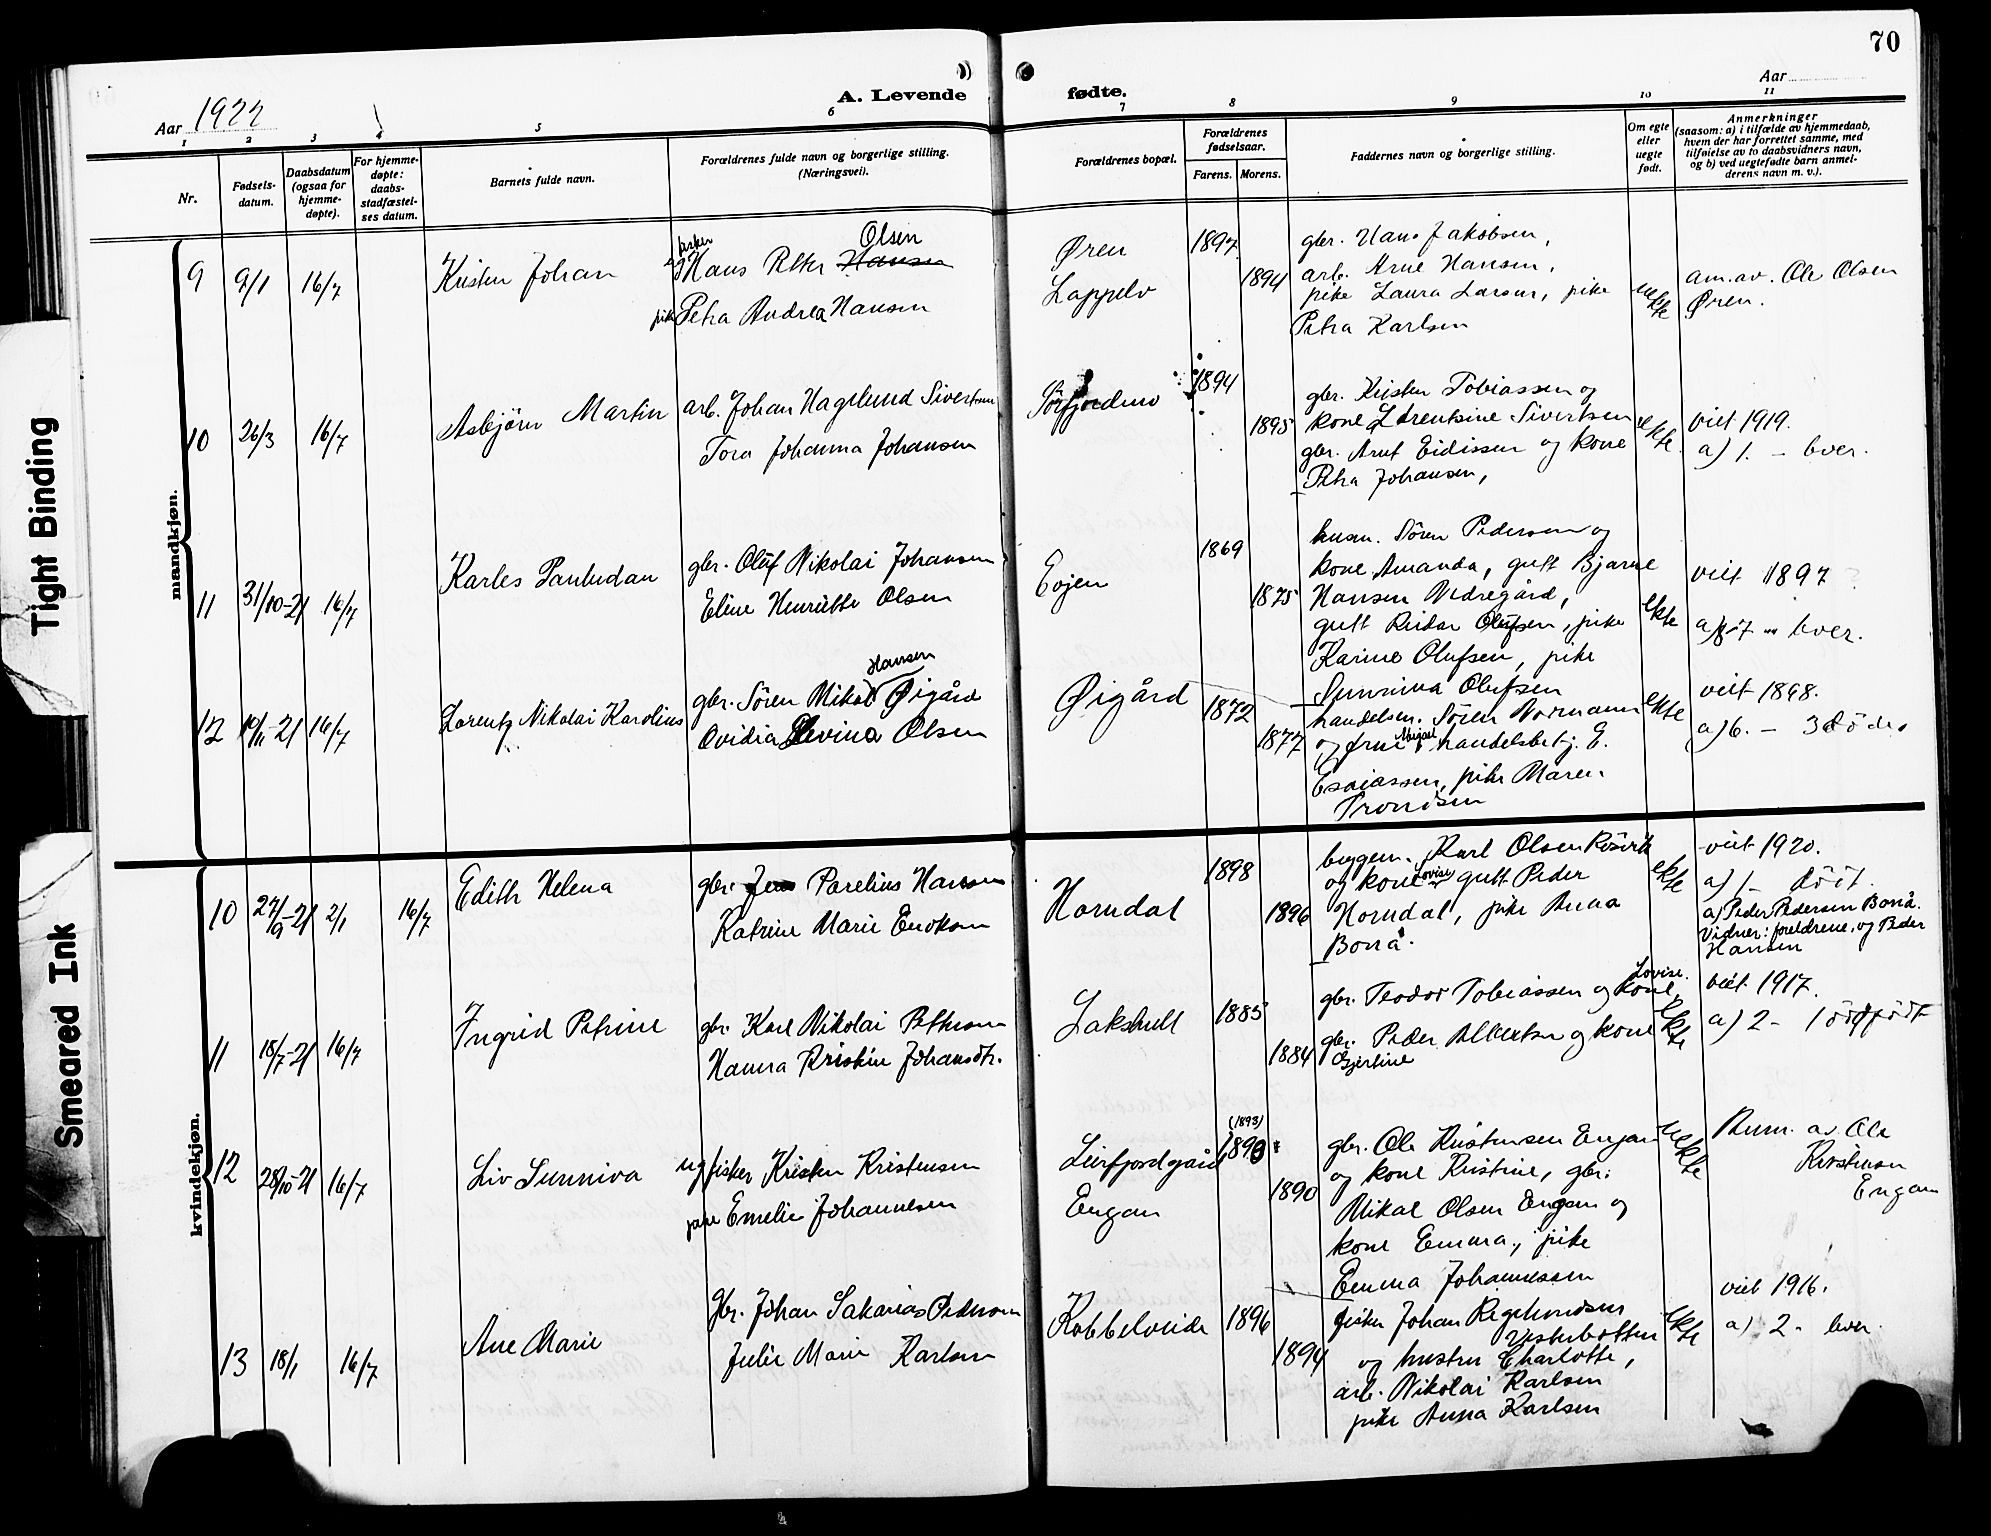 70
Tight Binding
Smeared Ink
Aar 1922
A. Levende
fødte.
Aar
1 2 3 4 5 6 7 8 9 10 11
Nr.
Fødsels-
datum.
Daabsdatum
(ogsaa for
hjemme-
døpte).
For hjemme-
døpte:
daabs-
stadfæstel-
ses datum.
Barnets fulde navn.
Forældrenes fulde navn og borgerlige stilling.
(Næringsvei).
Forældrenes bopæl.
Forældrenes
fødselsaar.
Farens. Morens.
Faddernes navn og borgerlige stilling.
Om egte
eller
uegte
født.
Anmerkninger
(saasom: a) i tilfælde av hjemmedaab,
hvem der har forrettet samme, med
tilføielse av to daabsvidners navn,
og b) ved uegtefødte barn anmel-
derens navn m. v.).
mandkjøn.
9 9/1 16/7 Kristen Johan
fisker Olsen
ug Hans Peter Hansen
pike Petra Andrea Hansen
Øren
Lappelv
1897
1894
gbr. Hans Jakobsen,
arb. Arne Hansen,
pike Laura Larsen, pike
Petra Karlsen
uekte
am. av. Ole Olsen
Øren.
10 26/3 16/7 Asbjörn Martin
arb. Johan Hagelund Sivertsen
Tora Johanna Johansen
Sörfjordmo
1894
1895
gbr. Kristen Tobiassen og
kone Lorentsine Sivertsen
gbr. Arnt Eidissen og kone
Petra Johansen,
ekte
viet 1919.
a) 1. - lever.
11 31/10-21 16/7 Karles Pauludan
gbr. Oluf Nikolai Johansen
Eline Henriette Olsen
Eojen
1869
1875
husm. Sören Pedersen og
kone Amanda, gutt Bjarne
Hansen Nedregård,
gutt Reidar Olufsen, pike
Karine Olufsen, pike
Sunniva Olufsen
ekte
viet 1897
a) 7 - lever.
12 19/11-21 16/7 Lorentz Nikolai Karolius
Hansen
gbr. Sören Mikal Øigård
Ovidia Levina Olsen
Øigård
1872
1877
handelsm. Sören Normann
og frue Abigael, handelsbetj. E.
Esaiassen, pike Maren
Trondsen
ekte
viet 1898.
a) 6. - 3 döde
kvindekjøn.
10 27/9-21 2/1 16/7 Edith Helena
gbr. Jens Parelius Hansen
Katrine Marie Erikson
Horndal
1898
1896
byggm. Karl Olsen Rösvik
og kone Lovise, gutt Peder
Horndal, pike Anna
Bonå.
ekte
viet 1920.
a) 1 - dödt.
a) Peder Pedersen Bonå.
Vidner: foreldrene, og Peder
Hansen
11 18/7-21 16/7 Ingrid Petrine
gbr. Karl Nikolai Petterson
Hanna Kristine Johansdtr.
Lakshell
1885
1884
Lovise.
gbr. Teodor Tobiassen og kone,
gbr. Peder Albertsen og kone
Gjertine
ekte
viet 1917.
a) 2 - 1 dödfödt
12 28/10-21 16/7 Liv Sunniva
ug fisker Kristen Kristensen
pike Emelie Johannesen
Leirfjordgård
Engan
(1893)
1893
1890
gbr. Ole Kristensen Engan
og kone Kristine, gbr.
Mikal Olsen Engan og
kone Emma, pike
Emma Johannessen
uekte
Anm. av Ole
Kristensen
Engan
13 18/1 16/7 Ane Marie
gbr. Johan Sakarias Pedersen
Julie Marie Karlsen
Kobbelveide
1896
1894
fisker Johan Regelmondsen
Vesterbotten
og hustru Charlotte,
arb. Nikolai Karlsen
pike Anna Karlsen
ekte
viet 1916.
a) 2 - lever.